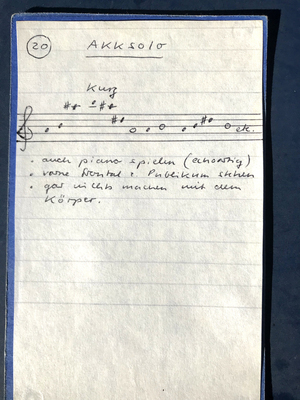 20 AKKsolo
Kurz
etc.
• auch piano spielen (echoartig)
• vorne frontal z. Publikum stehen
• gar nichts machen mit dem
Körper.